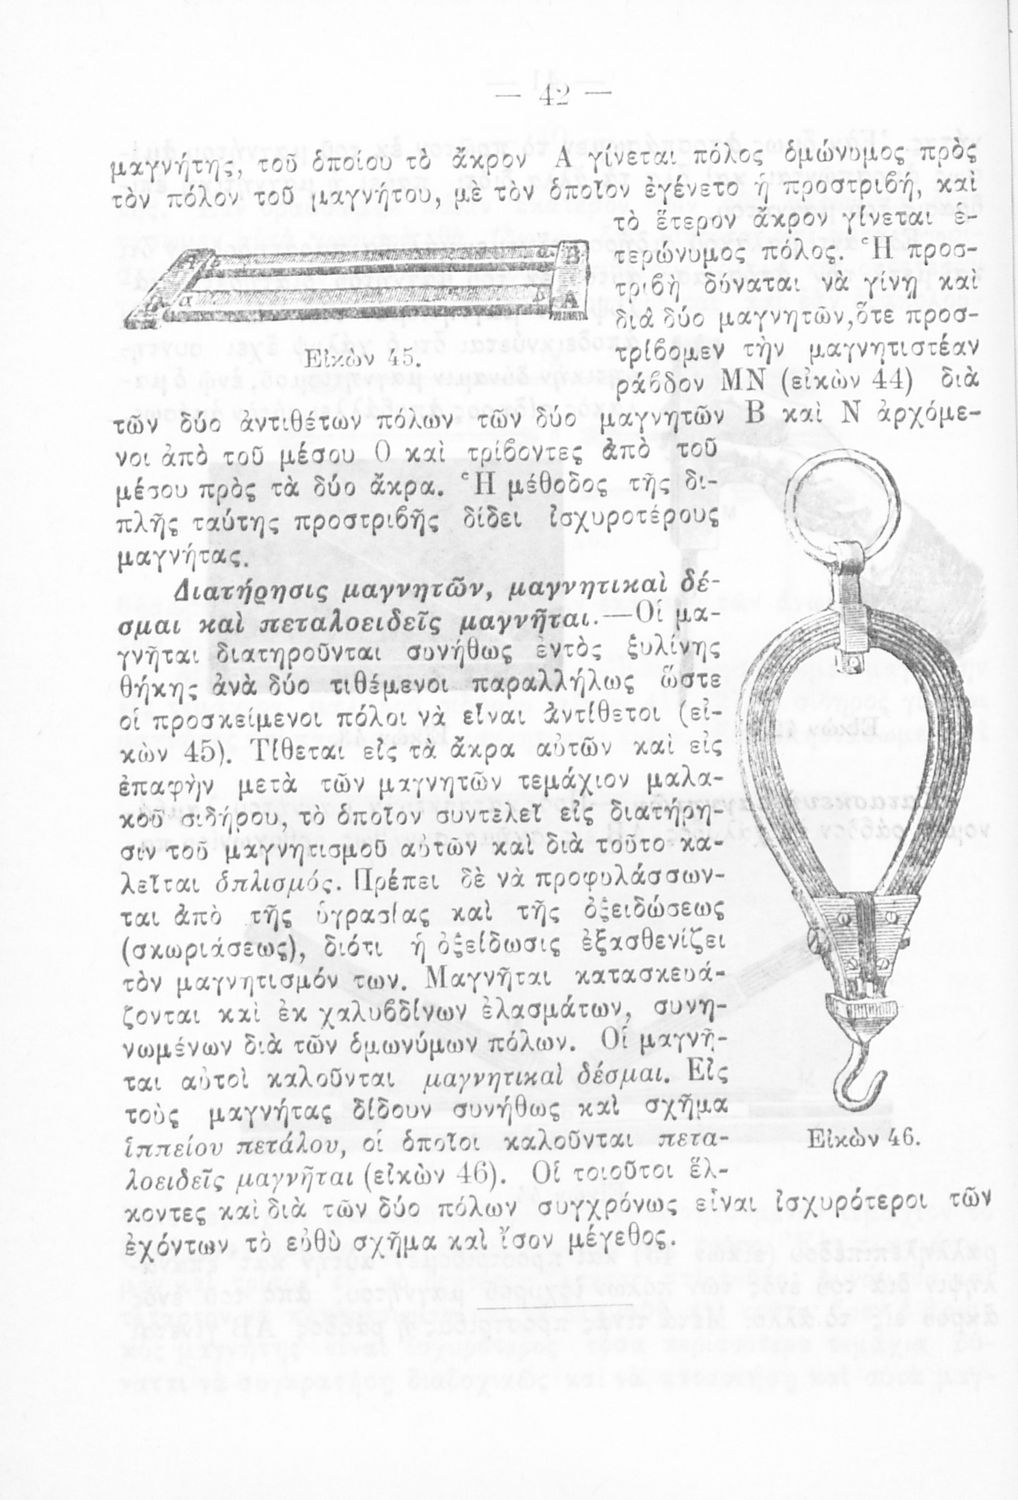 — 42 —
μαγνήτης, τοῦ ὁποίου τὸ ἄκρον Α γίνεται πόλος ὁμώνυμος πρὸς
τὸν πόλον τοῦ μαγνήτου, μὲ τὸν ὁποῖον ἐγένετο ἡ προστριβή, καὶ
τὸ ἕτερον ἄκρον γίνεται ἑ-
τερώνυμος πόλος. Ἡ προσ-
τριβὴ δύναται νὰ γίνῃ καὶ
διὰ δύο μαγνητῶν,ὅτε προσ-
τρίβομεν τὴν μαγνητιστέαν
ράβδον ΜΝ (εἰκὼν 44) διὰ
Β
Α
Εἰκὼν 45.
τῶν δύο ἀντιθέτων πόλων τῶν δύο μαγνητῶν Β καὶ Ν ἀρχόμε-
νοι ἀπὸ τοῦ μέσου Ο καὶ τρίβοντες ἀπὸ τοῦ
μέσου πρὸς τὰ δύο ἄκρα. Ἡ μέθοδος τῆς δι-
πλῆς ταύτης προστριβῆς δίδει ἰσχυροτέρους
μαγνήτας.
Διατήρησις μαγνητῶν, μαγνητικαὶ δέ-
σμαι καὶ πεταλοειδεῖς μαγνῆται.—Οἱ μα-
γνῆται διατηροῦνται συνήθως ἐντὸς ξυλίνης
θήκης ἀνὰ δύο τιθέμενοι παραλλήλως ὥστε
οἱ προσκείμενοι πόλοι νὰ εἶναι ἀντίθετοι (εἰ-
κὼν 45). Τίθεται εἰς τὰ ἄκρα αὐτῶν καὶ εἰς
ἐπαφὴν μετὰ τῶν μαγνητῶν τεμάχιον μαλα-
κοῦ σιδήρου, τὸ ὁποῖον συντελεῖ εἰς διατήρη-
σιν τοῦ μαγνητισμοῦ αὐτῶν καὶ διὰ τοῦτο κα-
λεῖται ὁπλισμός. Πρέπει δὲ νὰ προφυλάσσων-
ται ἀπὸ τῆς ὑγρασίας καὶ τῆς ὀξειδώσεως
(σκωριάσεως), διότι ἡ ὀξείδωσις ἐξασθενίζει
τὸν μαγνητισμόν των. Μαγνῆται κατασκευά-
ζονται καὶ ἐκ χαλυβδίνων ἐλασμάτων, συνη-
νωμένων διὰ τῶν ὁμωνύμων πόλων. Οἱ μαγνῆ-
ται αὐτοὶ καλοῦνται μαγνητικαὶ δέσμαι. Εἰς
τοὺς μαγνήτας δίδουν συνήθως καὶ σχῆμα
ἱππείου πετάλου, οἱ ὁποῖοι καλοῦνται πετα-
λοειδεῖς μαγνῆται (εἰκὼν 46). Οἱ τοιοῦτοι ἕλ-
Εἰκὼν 46.
κοντες καὶ διὰ τῶν δύο πόλων συγχρόνως εἶναι ἰσχυρότεροι τῶν
ἐχόντων τὸ εὐθὺ σχῆμα καὶ ἴσον μέγεθος.